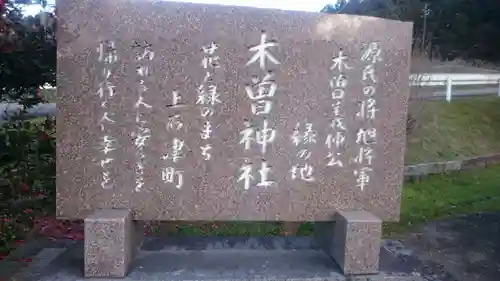 源氏の将旭将軍
木曽義仲公
縁の地
木曽神社
花と緑のまち
上河津町
訪れる人に安らぎを
帰り行く人に幸せを